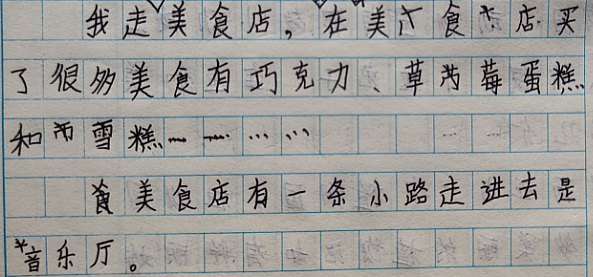 我走美食店,在美食店买
了很多美食有巧克力、草莓蛋糕
和雪糕………
美食店有一条小路走进去是
音乐厅。